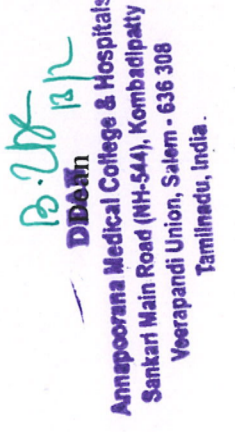 13/2
Dean
Annapoorana Medical College & Hospitals
Sankari Main Road (NH-544), Kombadipatty
Veerapandi Union, Salem - 636 308
Tamilnadu, India.